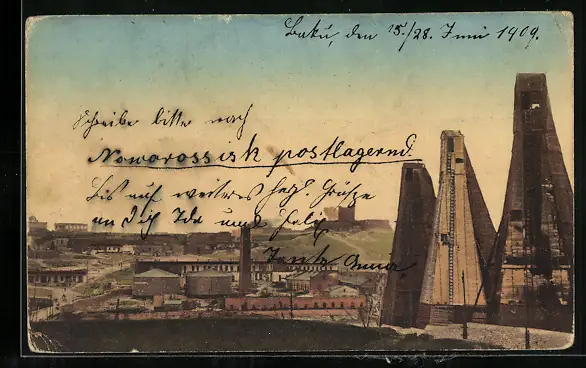 Baku, den 15./28. Juni 1909.
Schreibe bitte nach
Noworossisk postlagernd.
Bis auf weiteres herzl. Grüße
an dich Ida und Felix
Tante Anna